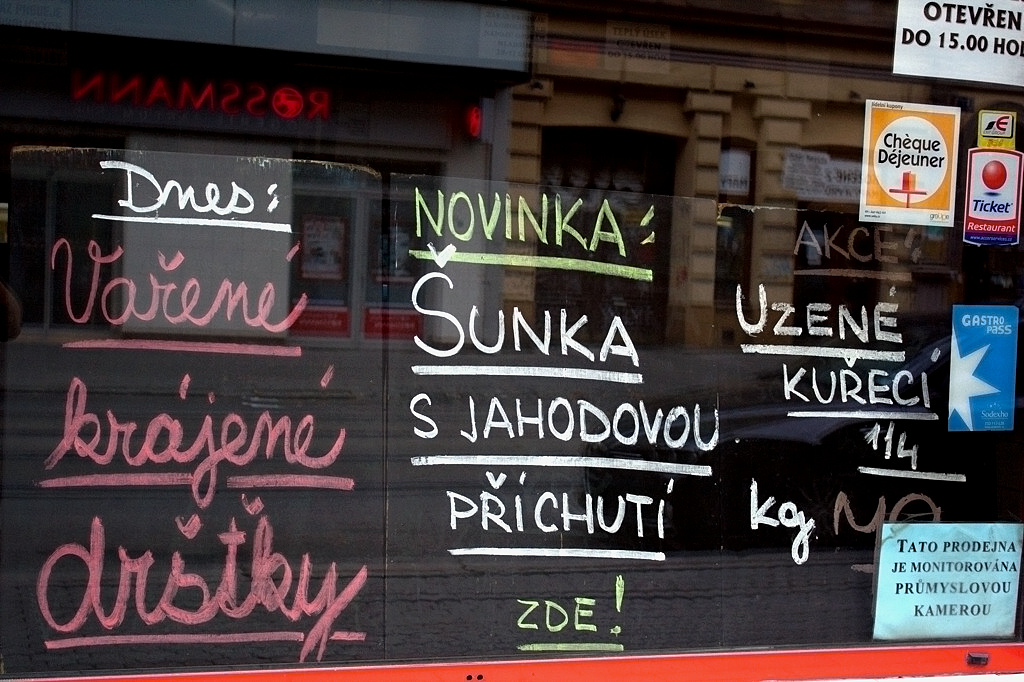 Dnes:
Vařené
krájené
dršťky
NOVINKA:
ŠUNKA
S JAHODOVOU
PŘÍCHUTÍ
ZDE!
AKCE:
UZENÉ
KUŘECÍ
1/4
kg
OTEVŘEN
DO 15.00 HO
jídelní kupony
Chèque
Déjeuner
Ticket
Restaurant
GASTRO
PASS
Sodexho
TATO PRODEJNA
JE MONITOROVÁNA
PRŮMYSLOVOU
KAMEROU
ROSSMANN